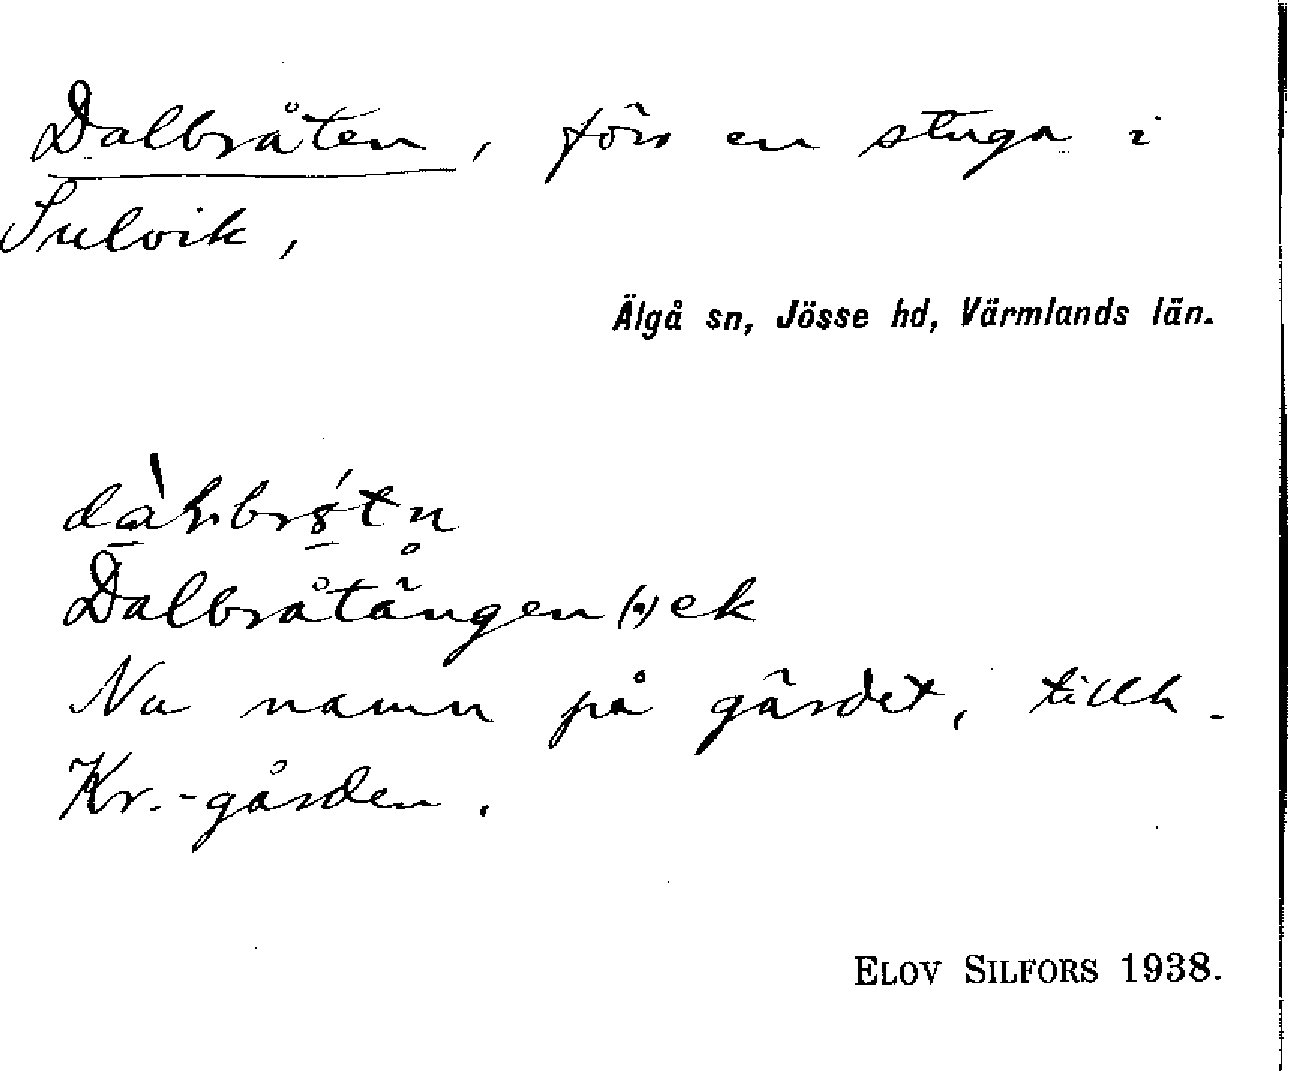 Dalbråten, förr en stuga i
Sulvik,
Älgå sn, Jösse hd, Värmlands län.
Dalbråtängen (°) ek
Nu namn på gärdet, tillh.
Kr.-gården.
ELOV SILFORS 1938.